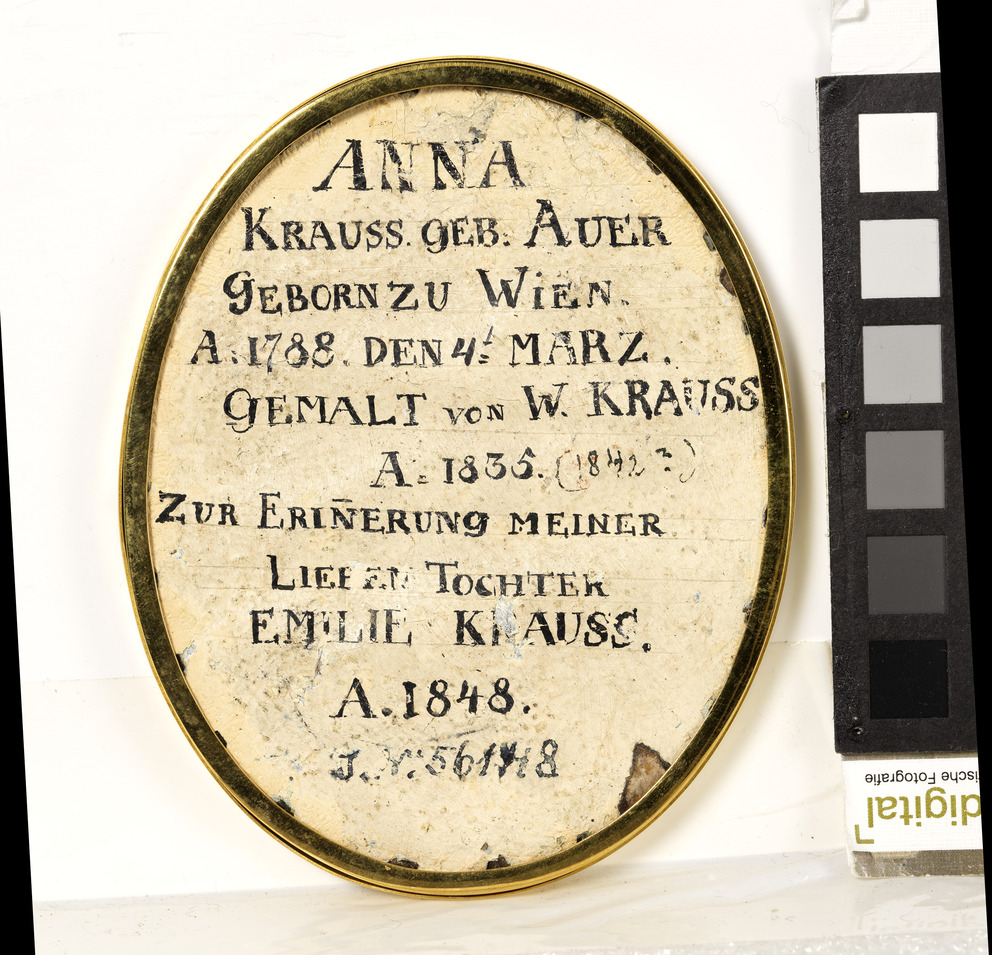 ANNA
KRAUSS. GEB: AUER
GEBORN ZU WIEN.
A:1788. DEN 4t MARZ.
GEMALT VON W. KRAUSS
A: 1835. (1842?)
ZUR ERIN̄ERUNG MEINER
LIEBEN TOCHTER
EMILIE KRAUSS.
A.1848.
J. No:
digital
ische Fotografie